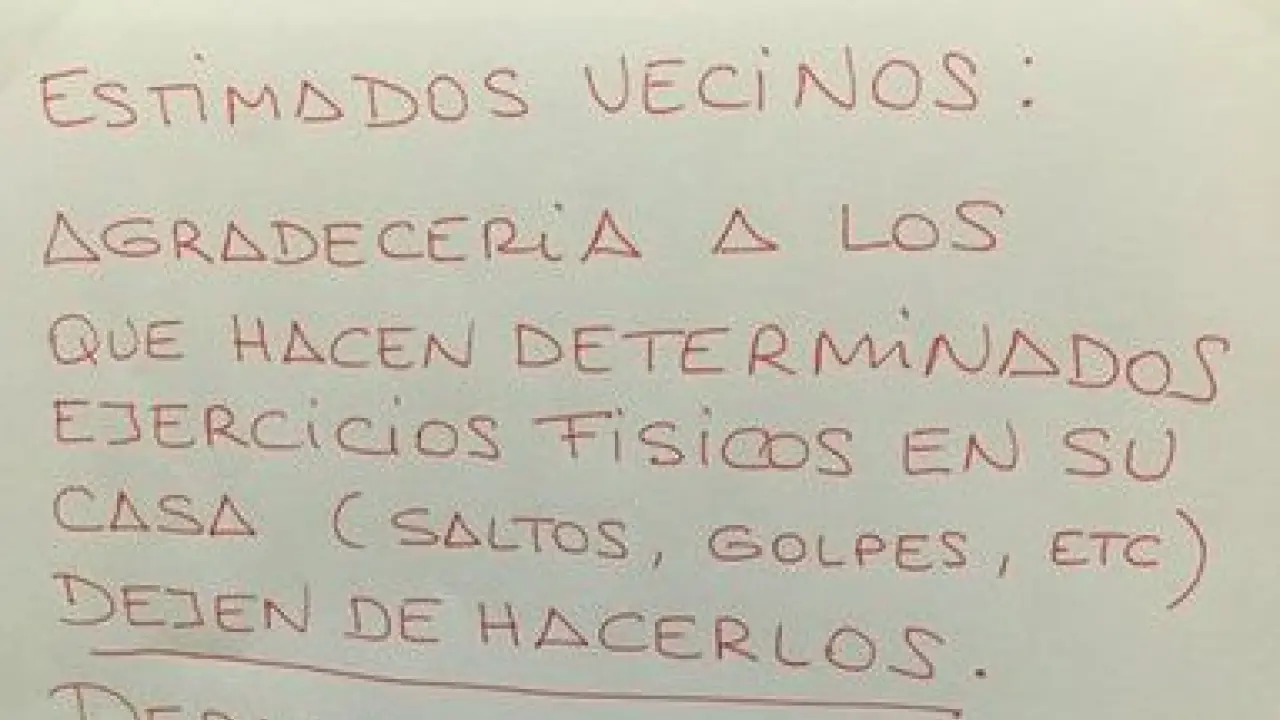 ESTIMADOS VECINOS:
AGRADECERIA A LOS
QUE HACEN DETERMINADOS
EJERCICIOS FISICOS EN SU
CASA (SALTOS, GOLPES, ETC)
DEJEN DE HACERLOS.